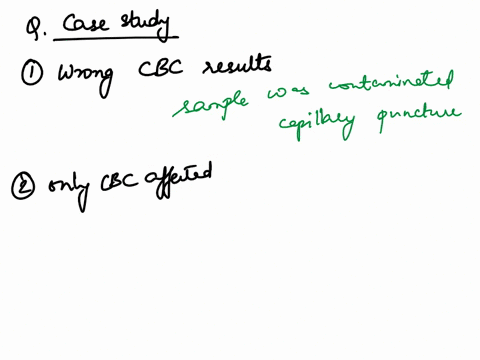 Q. Case study
① Wrong CBC results
sample was contaminated
capillary puncture
② only CBC affected